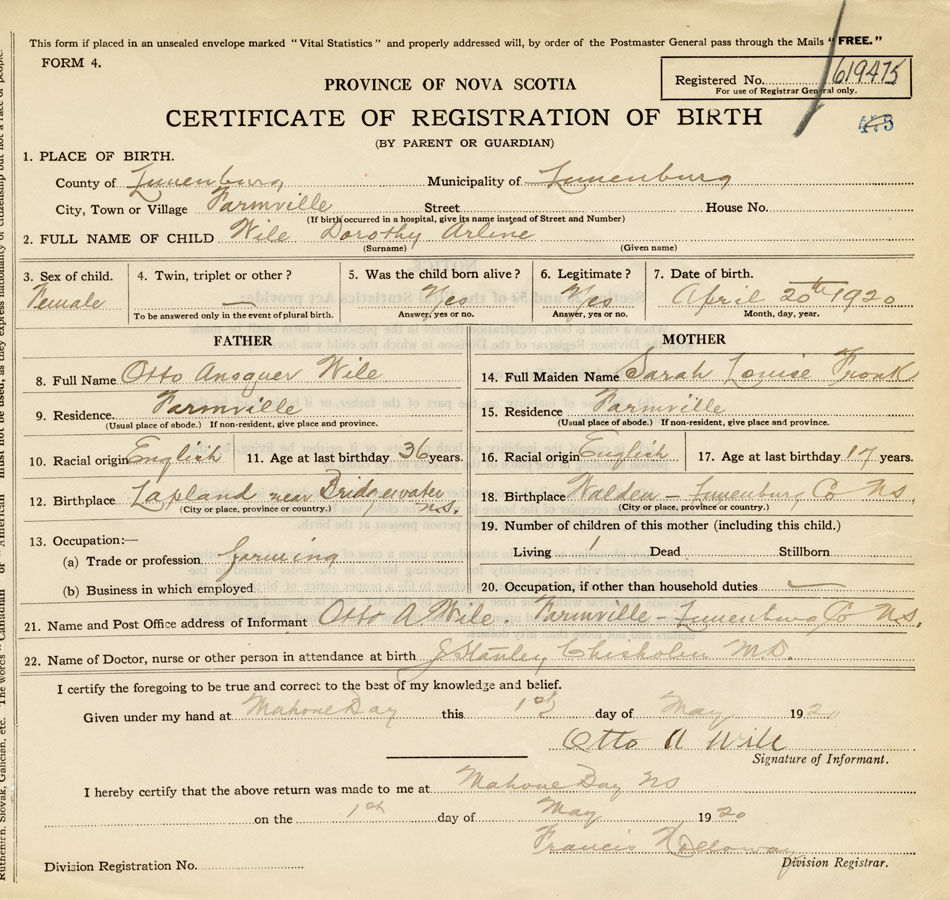 This form if placed in an unsealed envelope marked "Vital Statistics" and properly addressed will, by order of the Postmaster General pass through the Mails "FREE."
FORM 4.
Registered No. 619475
For use of Registrar General only.
PROVINCE OF NOVA SCOTIA
CERTIFICATE OF REGISTRATION OF BIRTH
(BY PARENT OR GUARDIAN)
1. PLACE OF BIRTH.
County of Lunenburg Municipality of Lunenburg
City, Town or Village Farmville Street House No.
(If birth occurred in a hospital, give its name instead of Street and Number)
2. FULL NAME OF CHILD Wile Dorothy Arline
(Surname) (Given name)
3. Sex of child. 4. Twin, triplet or other? 5. Was the child born alive? 6. Legitimate? 7. Date of birth.
Female — Yes Yes April 20th 1920
To be answered only in the event of plural birth. Answer, yes or no. Answer, yes or no. Month, day, year.
FATHER
8. Full Name Otto Wile
9. Residence. Farmville
(Usual place of abode.) If non-resident, give place and province.
10. Racial origin English 11. Age at last birthday 36 years.
12. Birthplace Lapland near Bridgewater N.S.
(City or place, province or country.)
13. Occupation:—
(a) Trade or profession farming
(b) Business in which employed
MOTHER
14. Full Maiden Name Sarah Louise Fronk
15. Residence Farmville
(Usual place of abode.) If non-resident, give place and province.
16. Racial origin English 17. Age at last birthday 17 years.
18. Birthplace Walden - Lunenburg Co NS.
(City or place, province or country.)
19. Number of children of this mother (including this child.)
Living 1 Dead Stillborn
20. Occupation, if other than household duties —
21. Name and Post Office address of Informant Otto A Wile. Farmville - Lunenburg Co N.S.
22. Name of Doctor, nurse or other person in attendance at birth J Stanley Chisholm M.D.
I certify the foregoing to be true and correct to the best of my knowledge and belief.
Given under my hand at Mahone Bay this 1st day of May 1920
Otto A Wile
Signature of Informant.
I hereby certify that the above return was made to me at Mahone Bay NS
on the 1st day of May 1920
Francis Holloway
Division Registration No. Division Registrar.